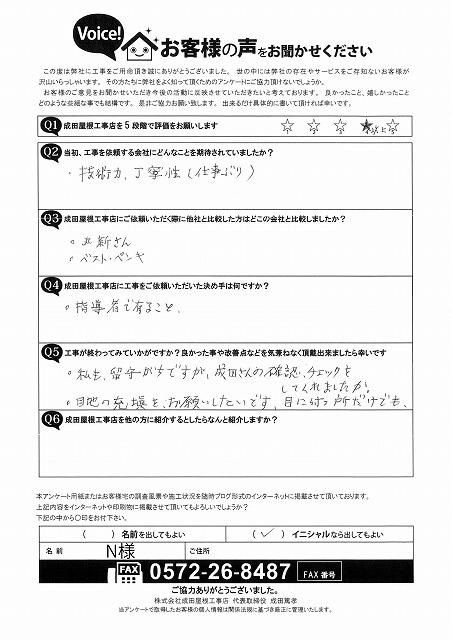 Voice!
お客様の声をお聞かせください
この度は弊社に工事をご用命頂き誠にありがとうございました。世の中には弊社の存在やサービスをご存知ないお客様が
沢山いらっしゃいます。その方たちに弊社をよく知って頂くためのアンケートにご協力頂けないでしょうか。
お客様のご意見をお聞かせいただき今後の活動に反映させていただきたいと考えております。良かったこと、嬉しかったこと
どのような些細な事でも結構です。是非ご協力お願い致します。出来るだけ具体的に書いて頂ければ幸いです。
Q1 成田屋根工事店を5段階で評価をお願いします ☆ ☆ ☆ ★以上☆
Q2 当初、工事を依頼する会社にどんなことを期待されていましたか?
・技術力、丁寧性(仕事ぶり)
Q3 成田屋根工事店にご依頼いただく際に他社と比較した方はどこの会社と比較しましたか?
。丸新さん
。ベスト・ペンキ
Q4 成田屋根工事店に工事をご依頼いただいた決め手は何ですか?
。指導者で有ること、
Q5 工事が終わってみていかがですか?良かった事や改善点などを気兼ねなく頂戴出来ましたら幸いです
。私も、留守がちですが、成田さんの確認、チェックを
してくれましたか。
。目地の充填を、お願いしたいです、目に付く所だけでも、
Q6 成田屋根工事店を他の方に紹介するとしたらなんと紹介しますか?
本アンケート用紙またはお客様宅の調査風景や施工状況を随時ブログ形式のインターネットに掲載させて頂いております。
上記内容をインターネットや印刷物に掲載させて頂いてもよろしいでしょうか?
下記の中から〇印をお付下さい。
( )名前を出してもよい (✓)イニシャルなら出してもよい
名前 N様 ご住所
FAX 0572-26-8487 FAX番号
ご協力ありがとうございました。
株式会社成田屋根工事店 代表取締役 成田篤孝
当アンケートで取得したお客様の個人情報は関係法規に基づき厳正に管理いたします。